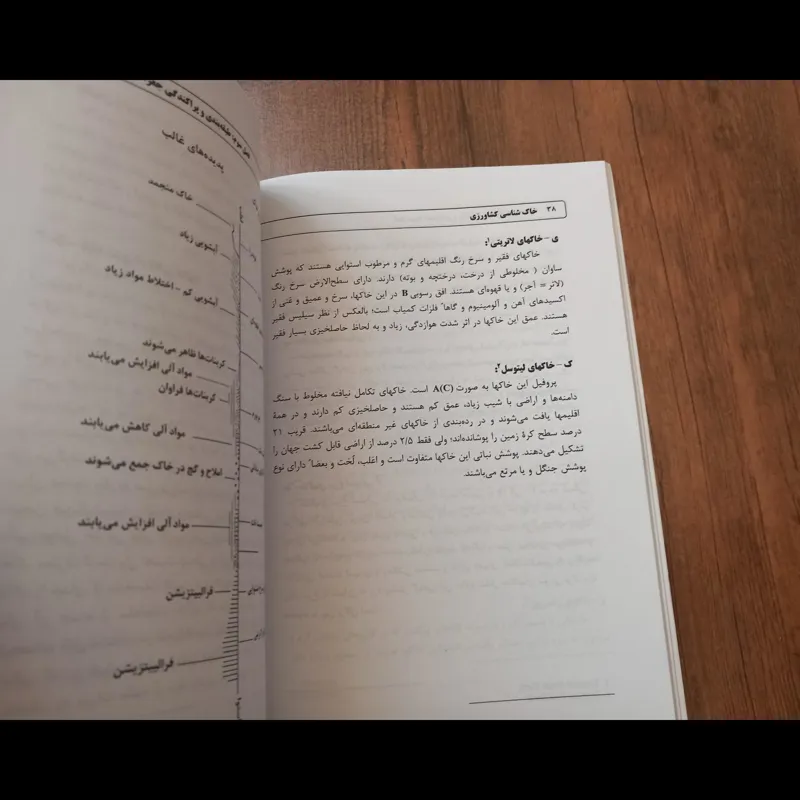 ۳۸ خاک شناسی کشاورزی
ی – خاکهای لاتریتی۱:
خاکهای فقیر و سرخ رنگ اقلیمهای گرم و مرطوب استوایی هستند که پوشش
ساوان ( مخلوطی از درخت، درختچه و بوته) دارند. دارای سطح‌الارض سرخ رنگ
(لاتر = آجر) و یا قهوه‌ای هستند. افق رسوبی B در این خاکها، سرخ و عمیق و غنی از
اکسیدهای آهن و آلومینیوم و گاهاً فلزات کمیاب است؛ بالعکس از نظر سیلیس فقیر
هستند. عمق این خاکها در اثر شدت هوازدگی، زیاد و به لحاظ حاصلخیزی بسیار فقیر
است.
ک – خاکهای لیتوسل۲:
پروفیل این خاکها به صورت A(C) است. خاکهای تکامل نیافته مخلوط با سنگ
دامنه‌ها و اراضی با شیب زیاد، عمق کم هستند و حاصلخیزی کم دارند و در همهٔ
اقلیمها یافت می‌شوند و در رده‌بندی از خاکهای غیر منطقه‌ای می‌باشند. قریب ۲۱
درصد سطح کرهٔ زمین را پوشانده‌اند؛ ولی فقط ۲/۵ درصد از اراضی قابل کشت جهان را
تشکیل می‌دهند. پوشش نباتی این خاکها متفاوت است و اغلب، لُخت و بعضاً دارای نوع
پوشش جنگل و یا مرتع می‌باشند.
طبقه‌بندی و پراکندگی
پدیده‌های غالب
خاک منجمد
آبشویی زیاد
آبشویی کم – اختلاط مواد زیاد
کربناتها ظاهر می‌شوند
مواد آلی افزایش می‌یابند
کربناتها فراوان
مواد آلی کاهش می‌یابند
املاح و گچ در خاک جمع می‌شوند
مواد آلی افزایش می‌یابند
فرالیتیزیشن
فرالیتیزیشن